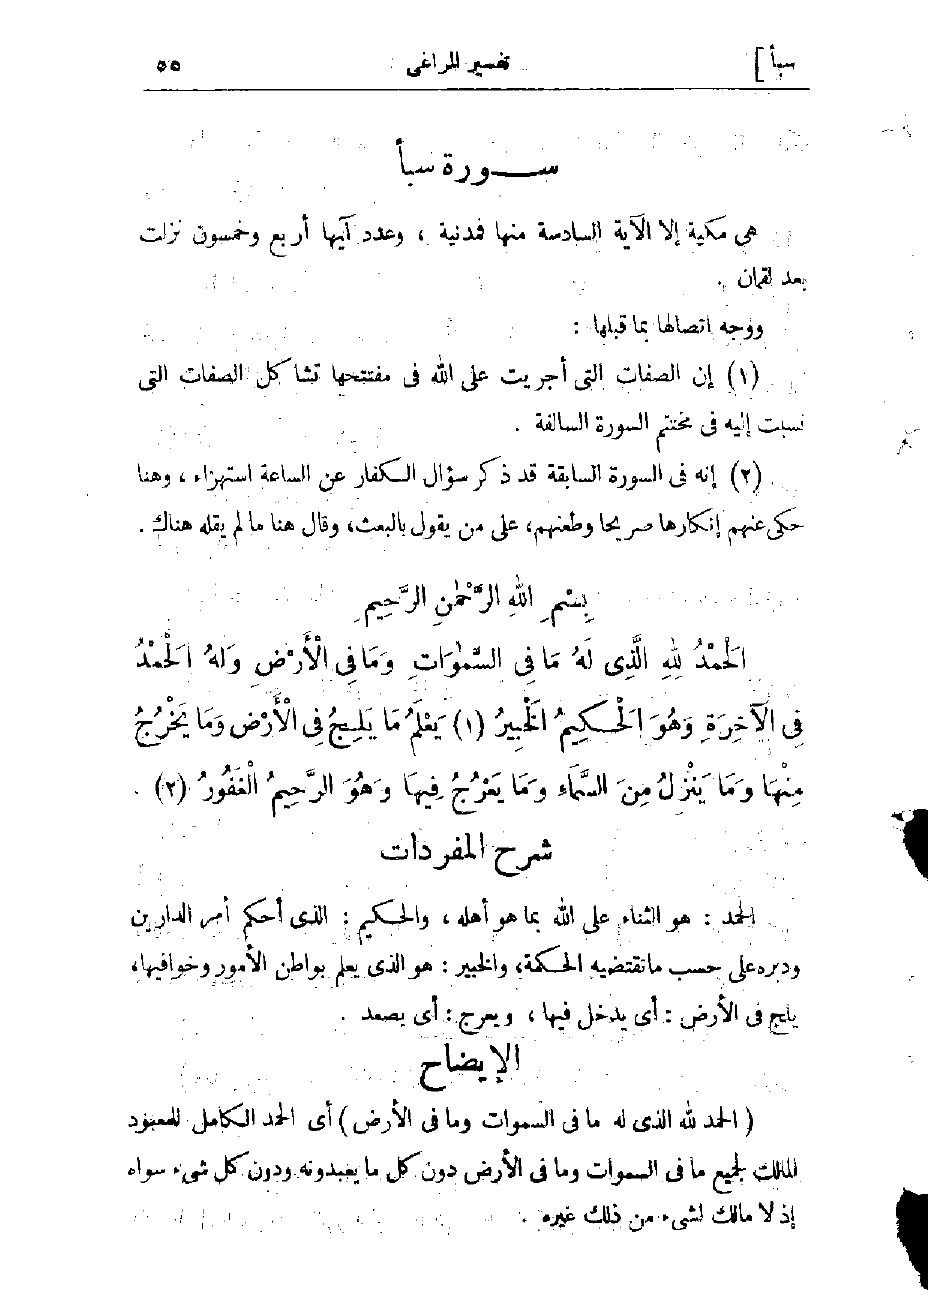 سبأ]
تفسير المراغى
٥٥
سورة سبأ
هى مكية إلا الآية السادسة منها فمدنية ، وعدد آيها أربع وخمسون نزلت
بعد لقمان .
ووجه اتصالها بما قبلها :
(١) إن الصفات التى أجريت على الله فى مفتتحها تشاكل الصفات التى
نسبت إليه فى مختتم السورة السالفة .
(٢) إنه فى السورة السابقة قد ذكر سؤال الكفار عن الساعة استهزاء ، وهنا
حكى عنهم إنكارها صريحا وطعنهم، على من يقول بالبعث، وقال هنا ما لم يقله هناك .
بِسْمِ اللهِ الرَّحْمٰنِ الرَّحِيمِ
الْحَمْدُ لِلهِ الَّذِى لَهُ مَا فِى السَّمٰوَاتِ وَمَا فِى الْأَرْضِ وَلَهُ الْحَمْدُ
فِى الْآخِرَةِ وَهُوَ الْحَكِيمُ الْخَبِيرُ (١) يَعْلَمُ مَا يَلِجُ فِى الْأَرْضِ وَمَا يَخْرُجُ
مِنْهَا وَمَا يَنْزِلُ مِنَ السَّمَاءِ وَمَا يَعْرُجُ فِيهَا وَهُوَ الرَّحِيمُ الْغَفُورُ (٢) .
شرح المفردات
الحمد : هو الثناء على الله بما هو أهله ، والحكيم : الذى أحكم أمر الدارين
ودبره على حسب ما تقتضيه الحكمة، والخبير : هو الذى يعلم بواطن الأمور وخوافيها،
يلج فى الأرض : أى يدخل فيها ، ويعرج : أى يصعد .
الإيضاح
( الحمد لله الذى له ما فى السموات وما فى الأرض ) أى الحمد الكامل للمعبود
المالك لجميع ما فى السموات وما فى الأرض دون كل ما يعبدونه ودون كل شىء سواه
إذ لا مالك لشىء من ذلك غيره .